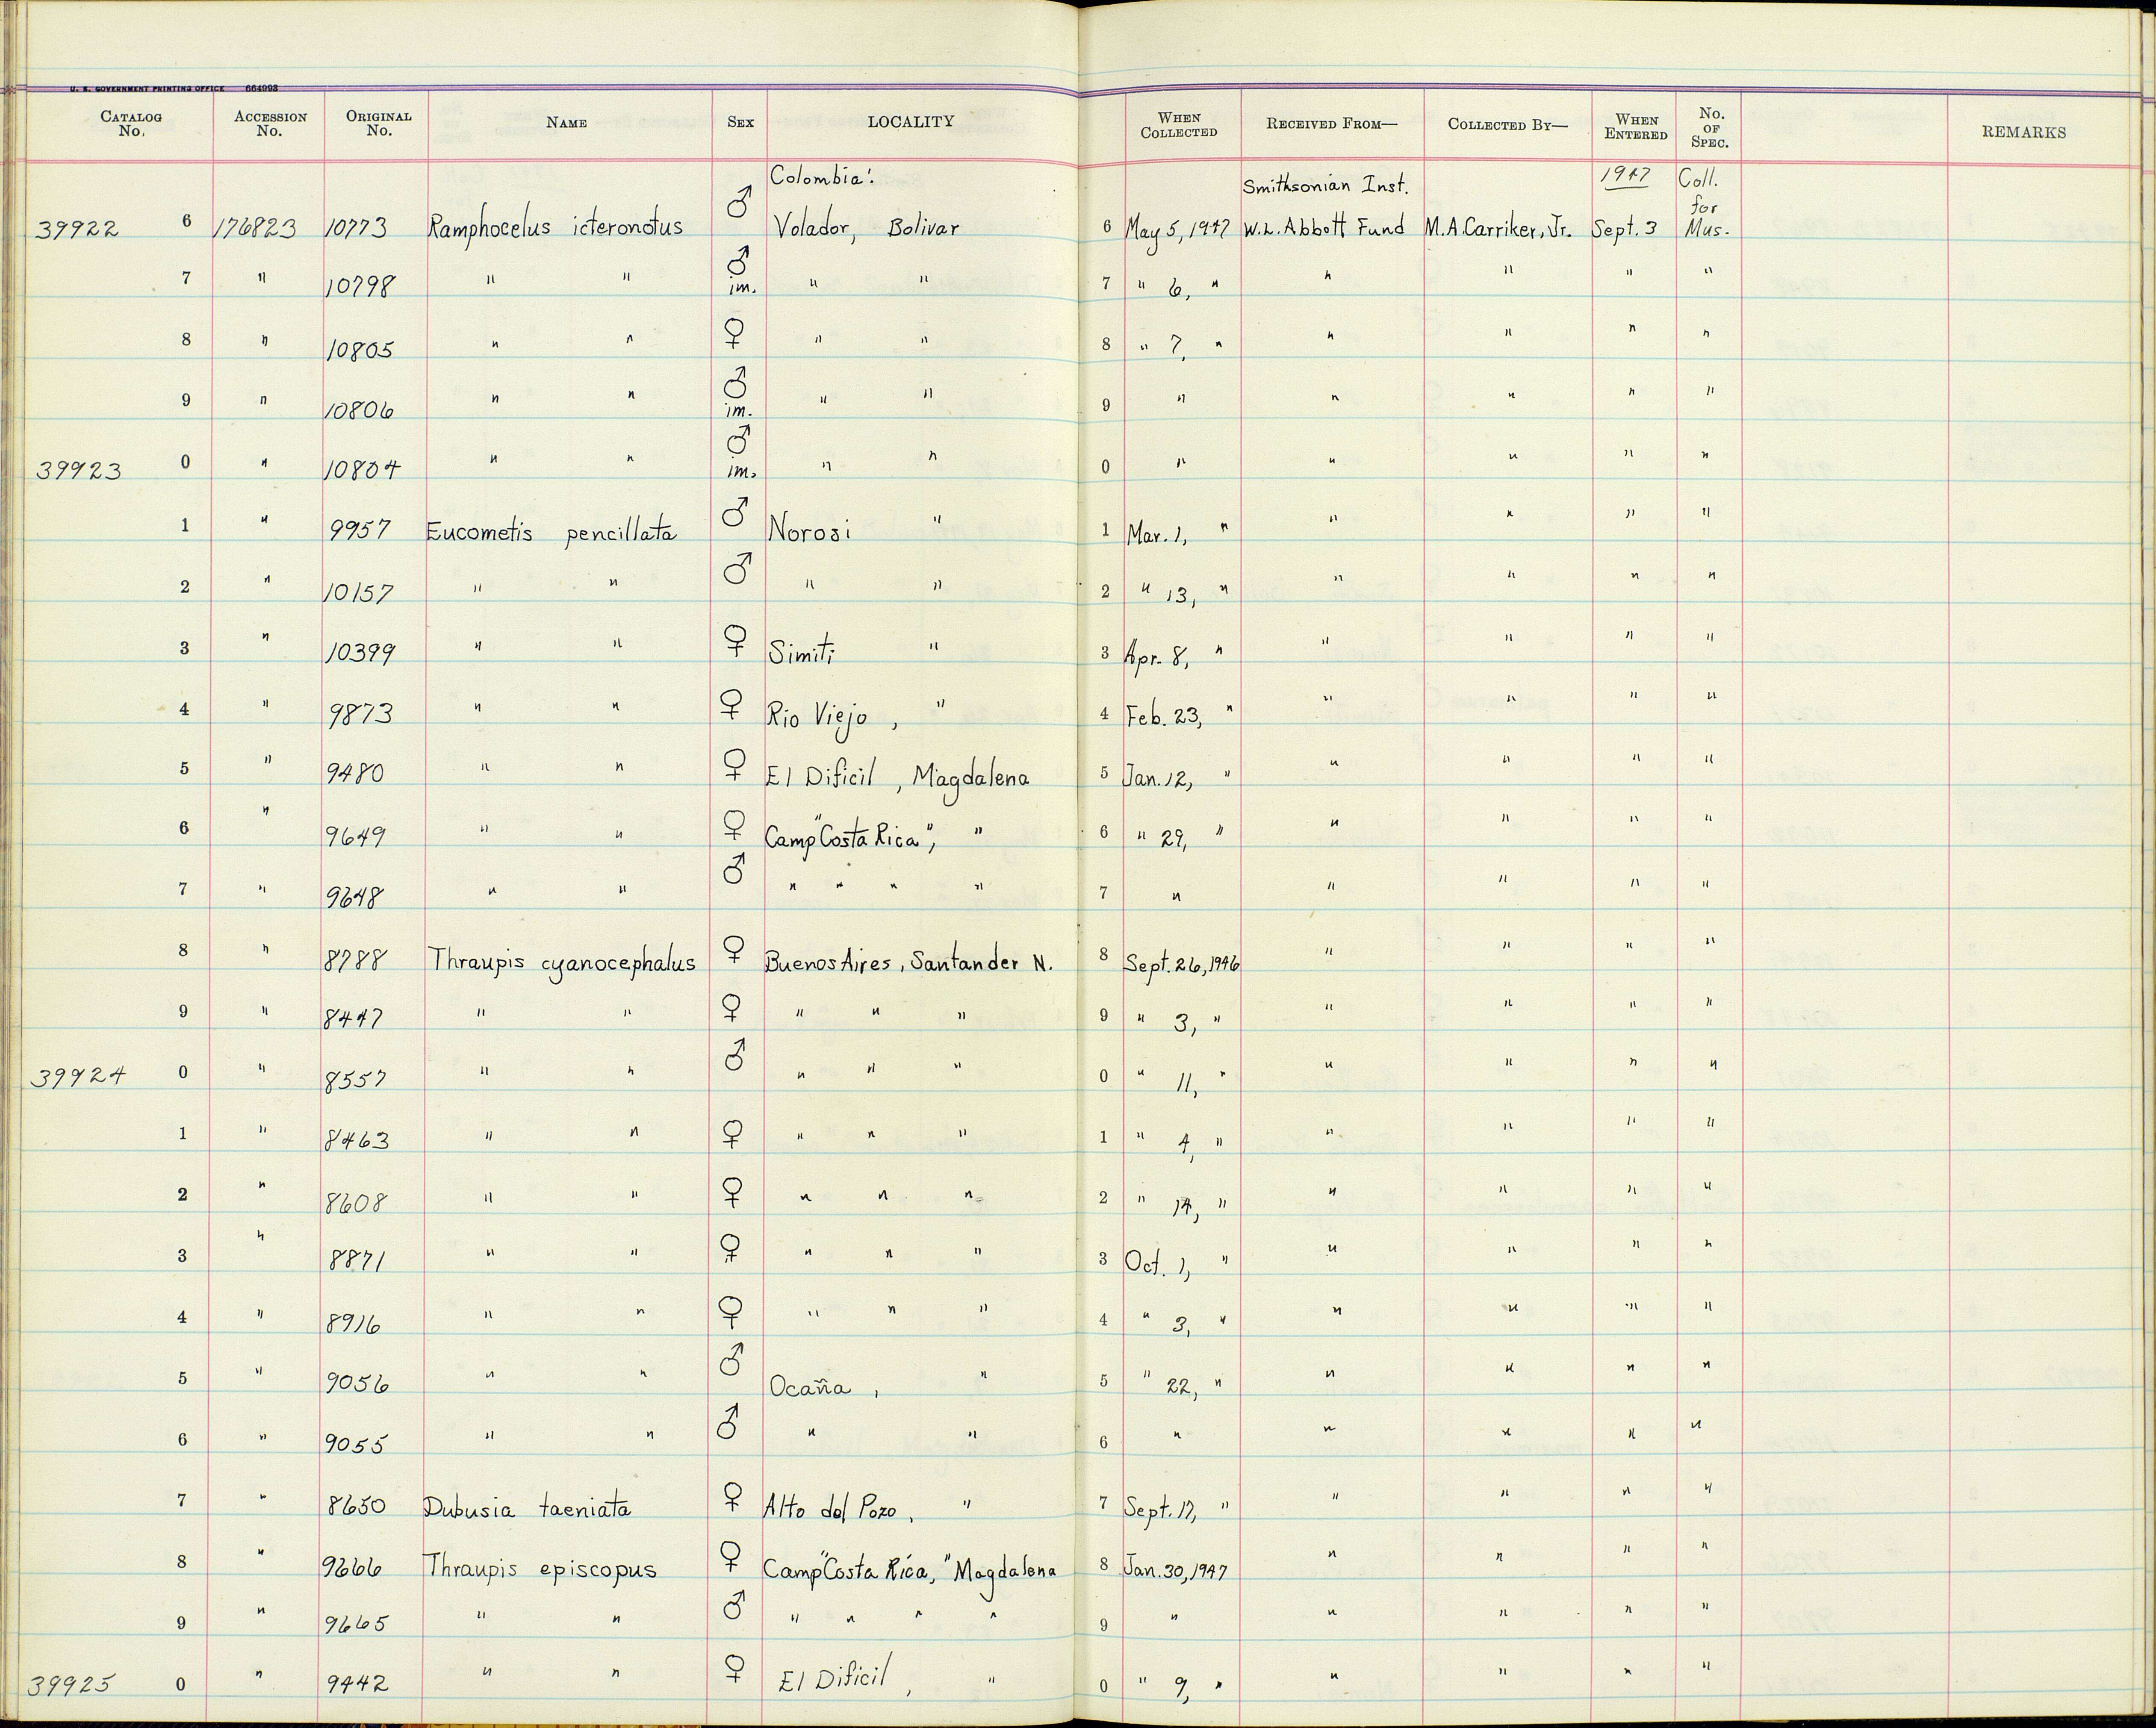 U. S. GOVERNMENT PRINTING OFFICE 664993
CATALOG No. ACCESSION No. ORIGINAL No. NAME SEX LOCALITY WHEN COLLECTED RECEIVED FROM— COLLECTED BY— WHEN ENTERED No. OF SPEC. REMARKS
Colombia: Smithsonian Inst. 1947 Coll. for
39922 6 176823 10773 Ramphocelus icteronotus ♂ Volador, Bolivar 6 May 5, 1947 W.L. Abbott Fund M.A. Carriker, Jr. Sept. 3 Mus.
7 " 10798 " " ♂ im. " " 7 " 6, " " " " "
8 " 10805 " " ♀ " " 8 " 7, " " " " "
9 " 10806 " " ♂ im. " " 9 " " " " "
39923 0 " 10804 " " ♂ im. " " 0 " " " " "
1 " 9957 Eucometis pencillata ♂ Norosi " 1 Mar. 1, " " " " "
2 " 10157 " " ♂ " " 2 " 13, " " " " "
3 " 10399 " " ♀ Simiti " 3 Apr. 8, " " " " "
4 " 9873 " " ♀ Rio Viejo , " 4 Feb. 23, " " " " "
5 " 9480 " " ♀ El Dificil , Magdalena 5 Jan. 12, " " " " "
6 " 9649 " " ♀ Camp "Costa Rica", " 6 " 29, " " " " "
7 " 9648 " " ♂ " " " " 7 " " " " "
8 " 8788 Thraupis cyanocephalus ♀ Buenos Aires, Santander N. 8 Sept. 26, 1946 " " " "
9 " 8447 " " ♀ " " " 9 " 3, " " " " "
39924 0 " 8557 " " ♂ " " " 0 " 11, " " " " "
1 " 8463 " " ♀ " " " 1 " 4, " " " " "
2 " 8608 " " ♀ " " " 2 " 14, " " " " "
3 " 8871 " " ♀ " " " 3 Oct. 1, " " " " "
4 " 8916 " " ♀ " " " 4 " 3, " " " " "
5 " 9056 " " ♂ Ocaña , " 5 " 22, " " " " "
6 " 9055 " " ♂ " " 6 " " " " "
7 " 8650 Dubusia taeniata ♀ Alto del Pozo , " 7 Sept. 17, " " " " "
8 " 9666 Thraupis episcopus ♀ Camp "Costa Rica," Magdalena 8 Jan. 30, 1947 " " " "
9 " 9665 " " ♂ " " " " 9 " " " " "
39925 0 " 9442 " " ♀ El Dificil , " 0 " 9, " " " " "